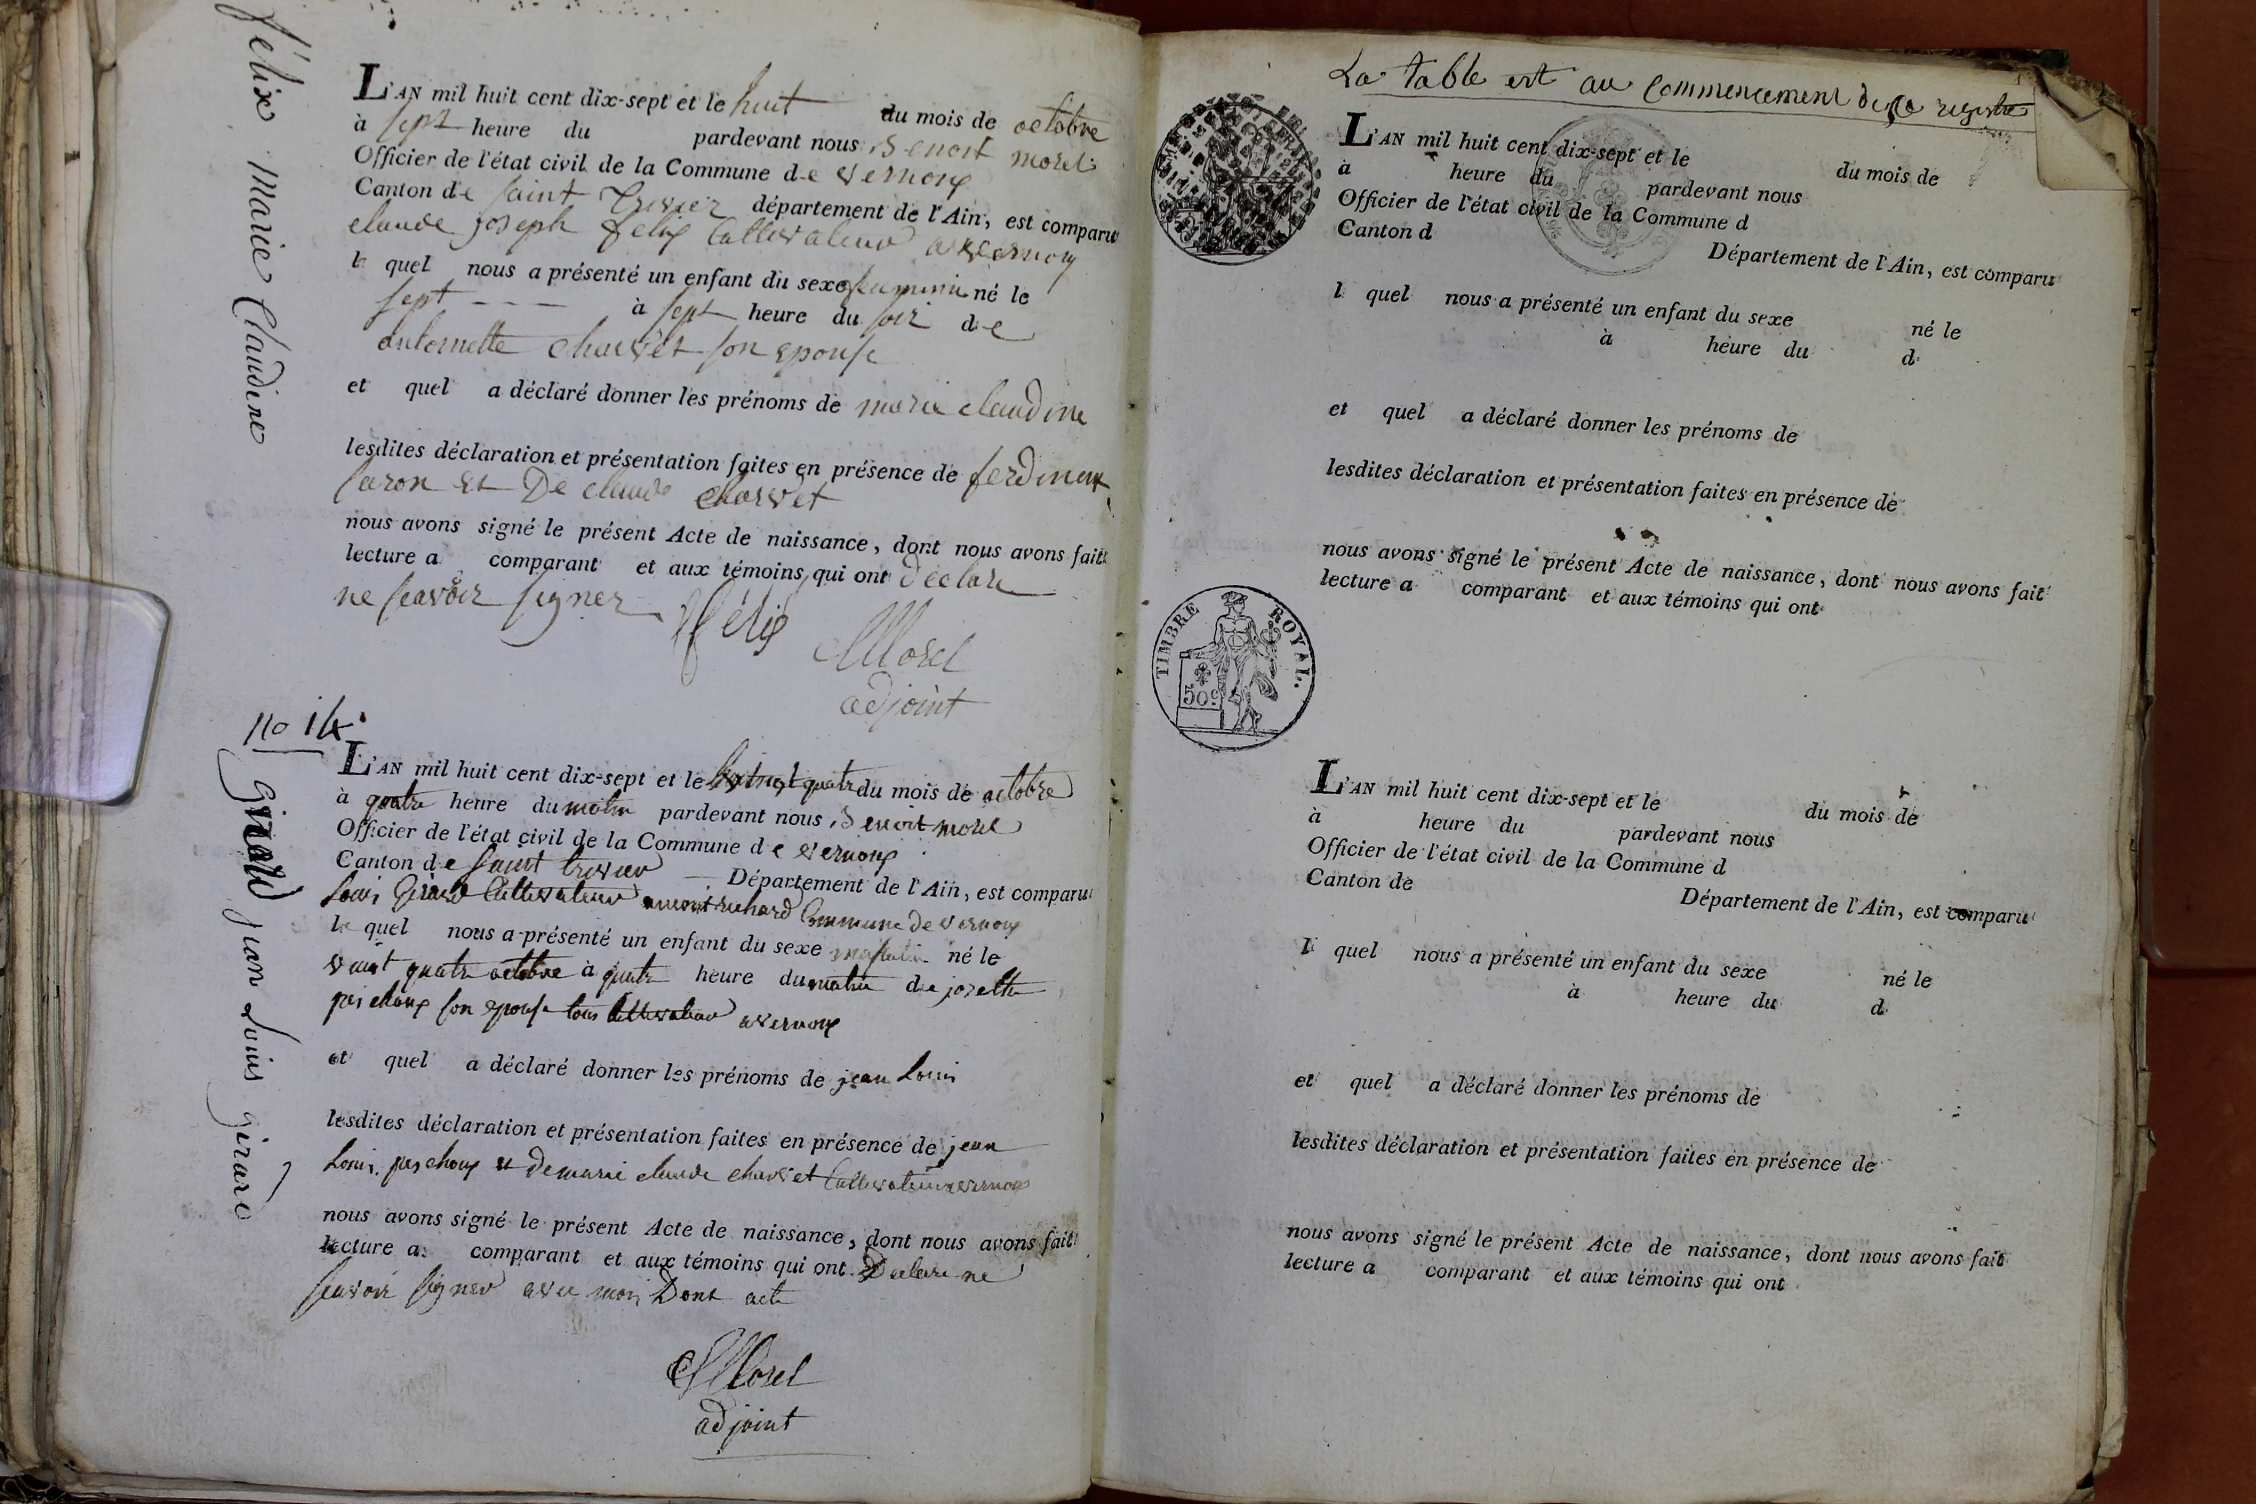 félix marie Claudine
L'AN mil huit cent dix-sept et le huit du mois de octobre
à sept heure du pardevant nous Benoit morel
Officier de l'état civil de la Commune de vernoux
Canton de saint trivier département de l'Ain, est comparu
claude joseph felix Cultivateur a vernoux
le quel nous a présenté un enfant du sexe feminin né le
sept à sept heure du soir de
antoinette charvet son epouse
et quel a déclaré donner les prénoms de marie claudine
lesdites déclaration et présentation faites en présence de ferdinent
saron et De claude charvet
nous avons signé le présent Acte de naissance, dont nous avons fait
lecture a comparant et aux témoins qui ont déclaré
ne scavoir signer félix
Morel
adjoint
no 14
girard jean Louis girard
L'AN mil huit cent dix-sept et le vingt quatre du mois de octobre
à quatre heure du matin pardevant nous Benoit morel
Officier de l'état civil de la Commune de vernoux
Canton de saint trivier Département de l'Ain, est comparu
Louis Girard Cultivateur a montrichard Commune de vernoux
le quel nous a présenté un enfant du sexe masculin né le
vaint quatre octobre à quatre heure du matin de josette
pei choux son epouse tous Cultivateur a vernoux
et quel a déclaré donner les prénoms de jean Louis
lesdites déclaration et présentation faites en présence de jean
Louis pei choux et de marie claude charvet Cultivateur a vernoux
nous avons signé le présent Acte de naissance, dont nous avons fait
lecture a comparant et aux témoins qui ont Déclaré ne
scavoir signer avec moi Dont acte
Morel
adjoint
La table est au Commencement de ce registre
L'AN mil huit cent dix-sept et le du mois de
à heure du pardevant nous
Officier de l'état civil de la Commune d
Canton d Département de l'Ain, est comparu
l quel nous a présenté un enfant du sexe né le
à heure du d
et quel a déclaré donner les prénoms de
lesdites déclaration et présentation faites en présence de
nous avons signé le présent Acte de naissance, dont nous avons fait
lecture a comparant et aux témoins qui ont
TIMBRE ROYAL.
50c
L'AN mil huit cent dix-sept et le du mois de
à heure du pardevant nous
Officier de l'état civil de la Commune d
Canton de Département de l'Ain, est comparu
l quel nous a présenté un enfant du sexe né le
à heure du d
et quel a déclaré donner les prénoms de
lesdites déclaration et présentation faites en présence de
nous avons signé le présent Acte de naissance, dont nous avons fait
lecture a comparant et aux témoins qui ont